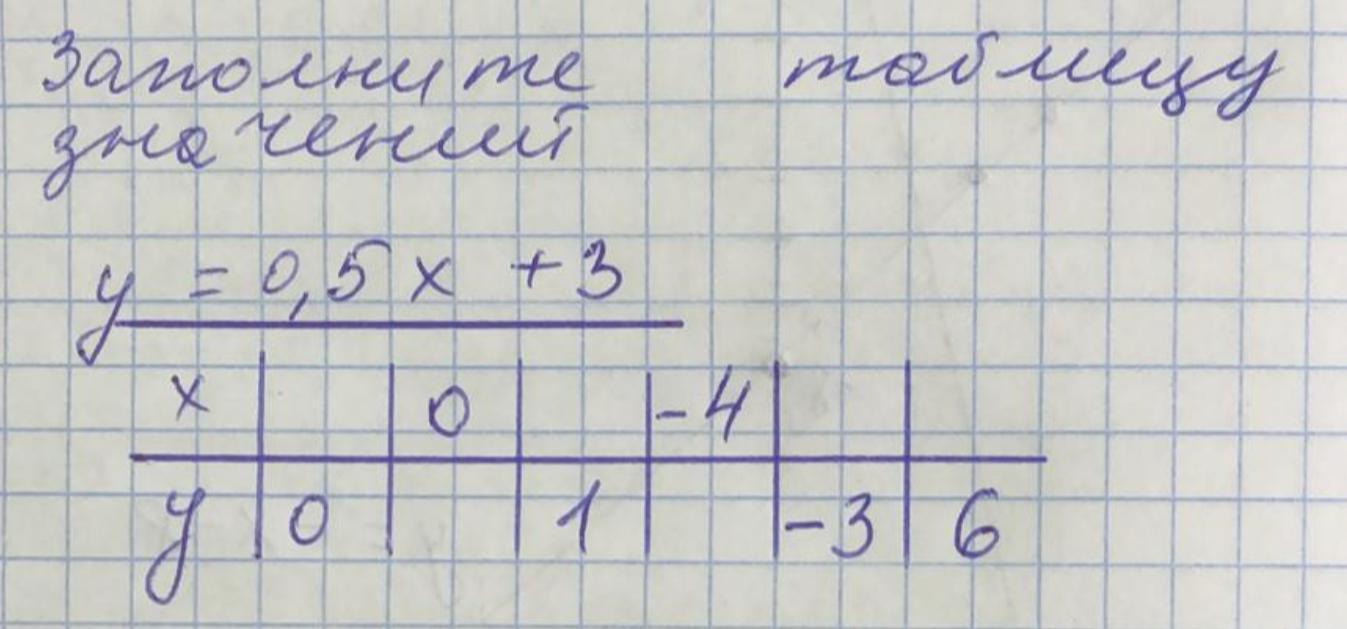 Заполните таблицу
значений
y = 0,5 x + 3
x 0 -4
y 0 1 -3 6